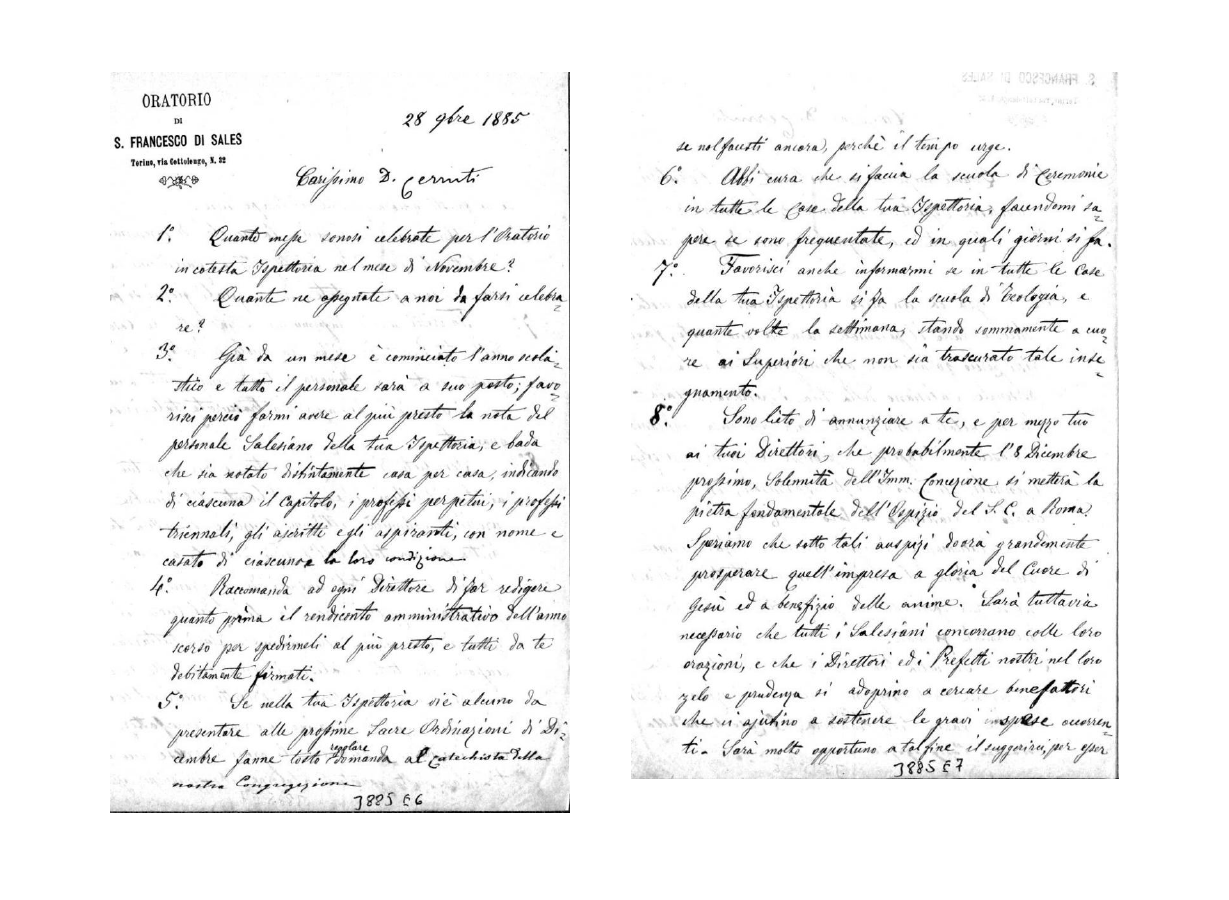 ORATORIO
DI
S. FRANCESCO DI SALES
Torino, via Cottolengo, N. 32
28 9bre 1885
Carissimo D. Cerruti
1° Quante messe sonosi celebrate per l'Oratorio
in cotesta Ispettoria nel mese di Novembre?
2° Quante ne assegnate a noi da farsi celebra
re?
3° Già da un mese è cominciato l'anno scola=
stico e tutto il personale sarà a suo posto; favo
risci perciò farmi avere al più presto la nota del
personale Salesiano della tua Ispettoria, e bada
che sia notato distintamente casa per casa, indicando
di ciascuna il Capitolo, i professi perpetui, i professi
triennali, gli ascritti e gli aspiranti, con nome e
casato di ciascuno e la loro condizione
4° Raccomanda ad ogni Direttore di far redigere
quanto prima il rendiconto amministrativo dell'anno
scorso per spedirmeli al più presto, e tutti da te
debitamente firmati.
5° Se nella tua Ispettoria v'è alcuno da
presentare alle prossime Sacre Ordinazioni di Di=
cembre fanne tosto regolare domanda al Catechista della
nostra Congregazione
3885 C6
S. FRANCESCO DI SALES
se nol facesti ancora, perchè il tempo urge.
6° Abbi cura che si faccia la scuola di Ceremonie
in tutte le Case della tua Ispettoria, facendomi sa=
pere se sono frequentate, ed in quali giorni si fa.
7° Favorisci anche informarmi se in tutte le Case
della tua Ispettoria si fa la scuola di Teologia, e
quante volte la settimana, stando sommamente a cuo=
re ai Superiori che non sia trascurato tale inse=
gnamento.
8° Sono lieto di annunziare a te, e per mezzo tuo
ai tuoi Direttori, che probabilmente l'8 Dicembre
prossimo, Solennità dell'Imm. Concezione si metterà la
pietra fondamentale dell'Ospizio del S. C. a Roma.
Speriamo che sotto tali auspizi dovrà grandemente
prosperare quell'impresa a gloria del Cuore di
Gesù ed a benefizio delle anime. Sarà tuttavia
necessario che tutti i Salesiani concorrano colle loro
orazioni, e che i Direttori ed i Prefetti nostri nel loro
zelo e prudenza si adoprino a cercare benefattori
che ci ajutino a sostenere le gravi spese occorren=
ti. Sarà molto opportuno a tal fine il suggerirci, per esser
3885 C7